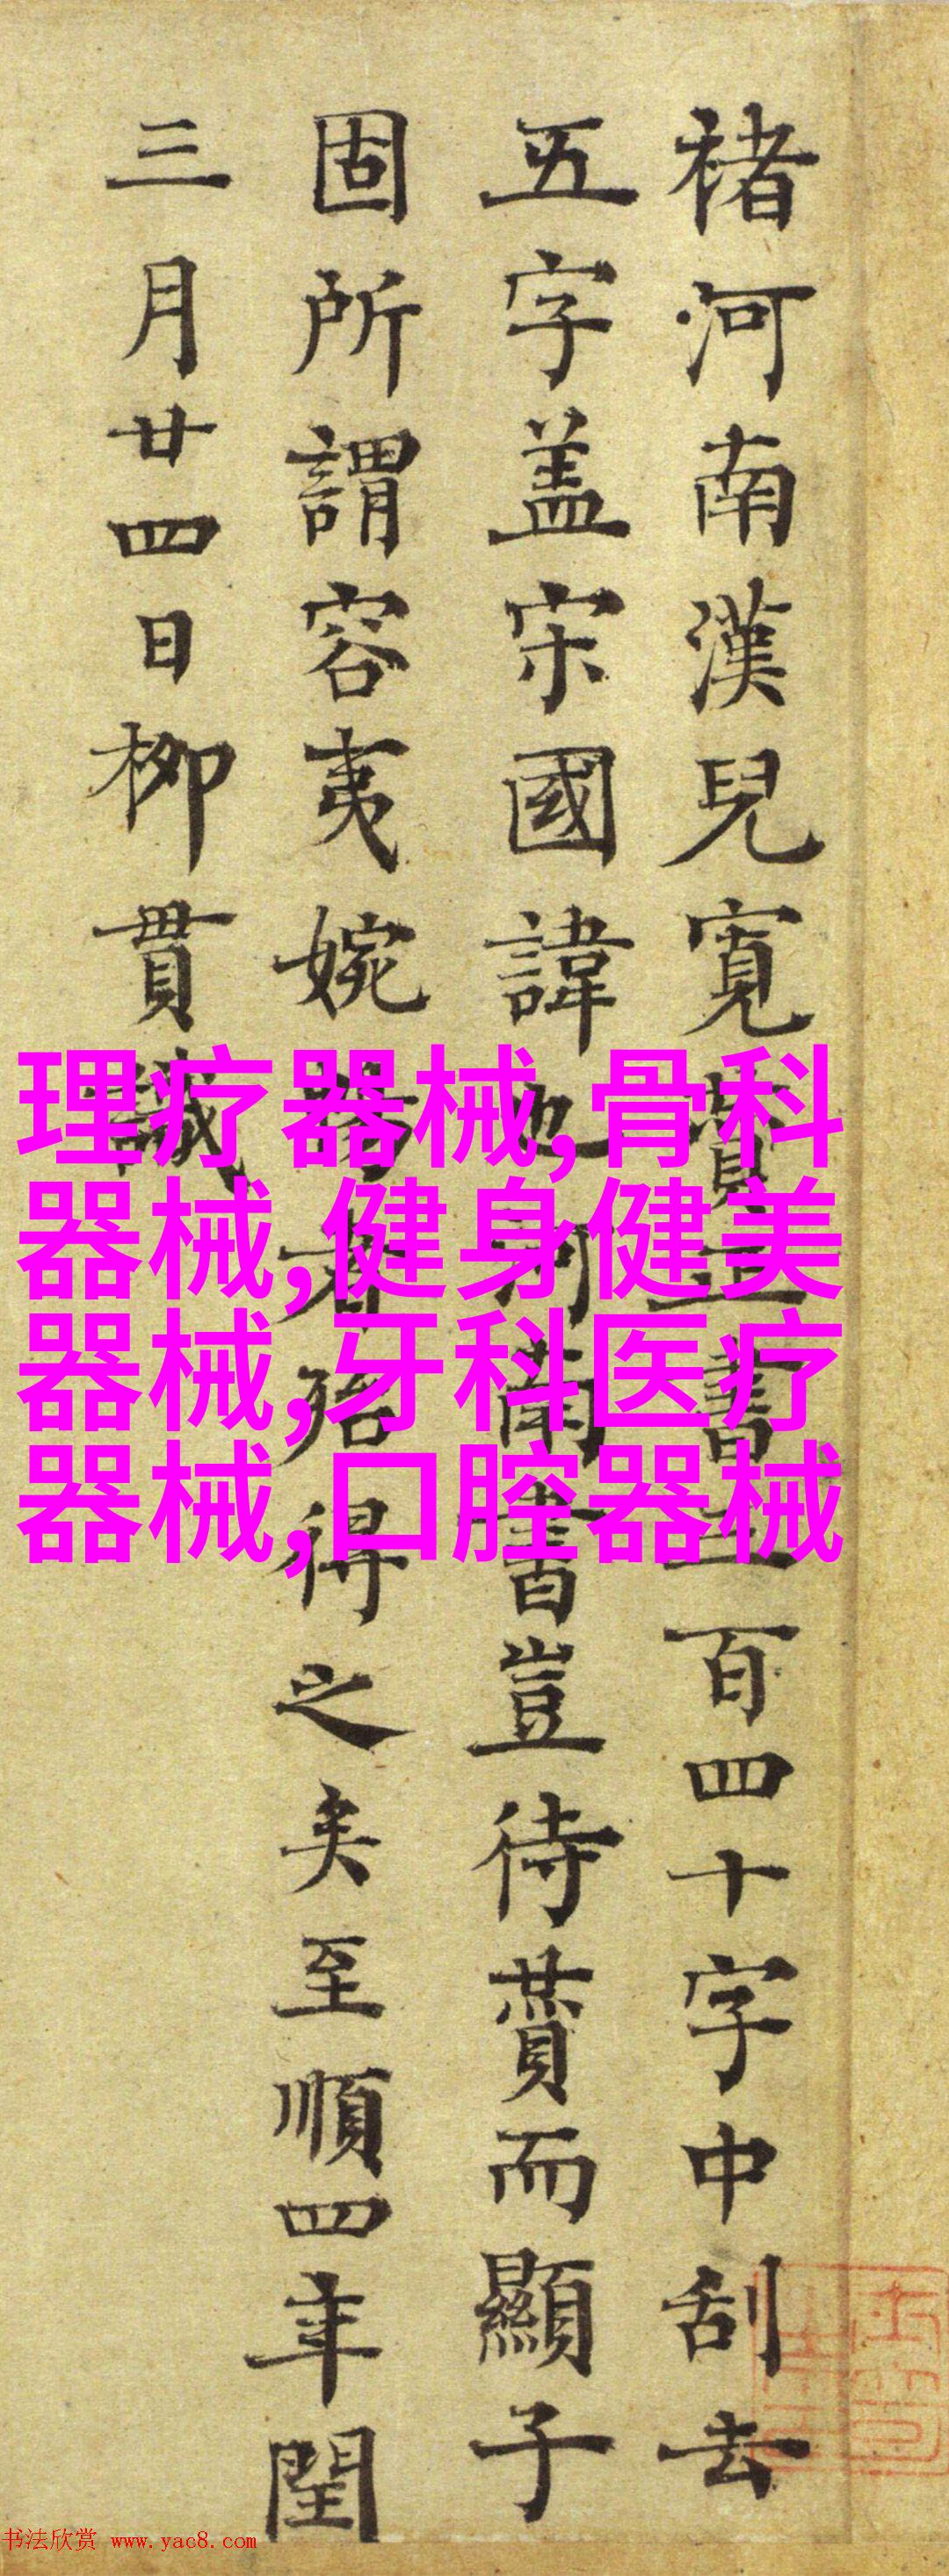 褚河南漢兒寬賛五書三百四十字中刮去
五字盖宋國諱也河南書豈待賛而顯子
固所謂容夷婉暢者殆得之矣至順四年閏
三月廿四日柳貫識
理疗器械,骨科
器械,健身健美
器械,牙科医疗
器械,口腔器械
书法欣赏 www.yac8.com